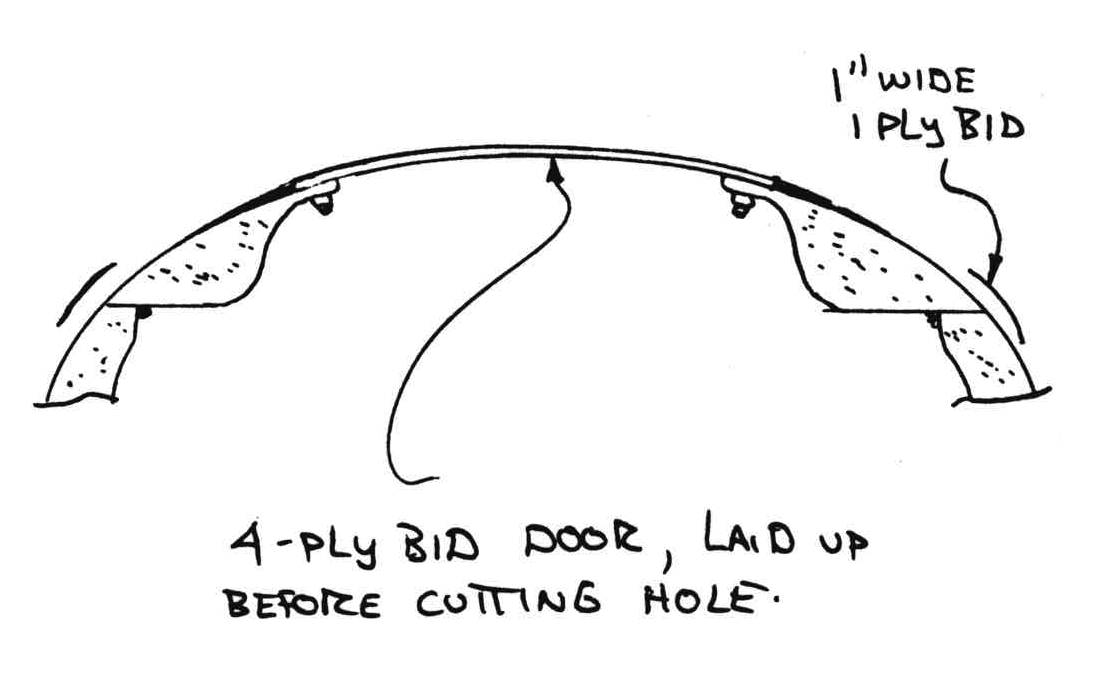 1" WIDE
1 PLY BID
4-PLY BID DOOR, LAID UP
BEFORE CUTTING HOLE.